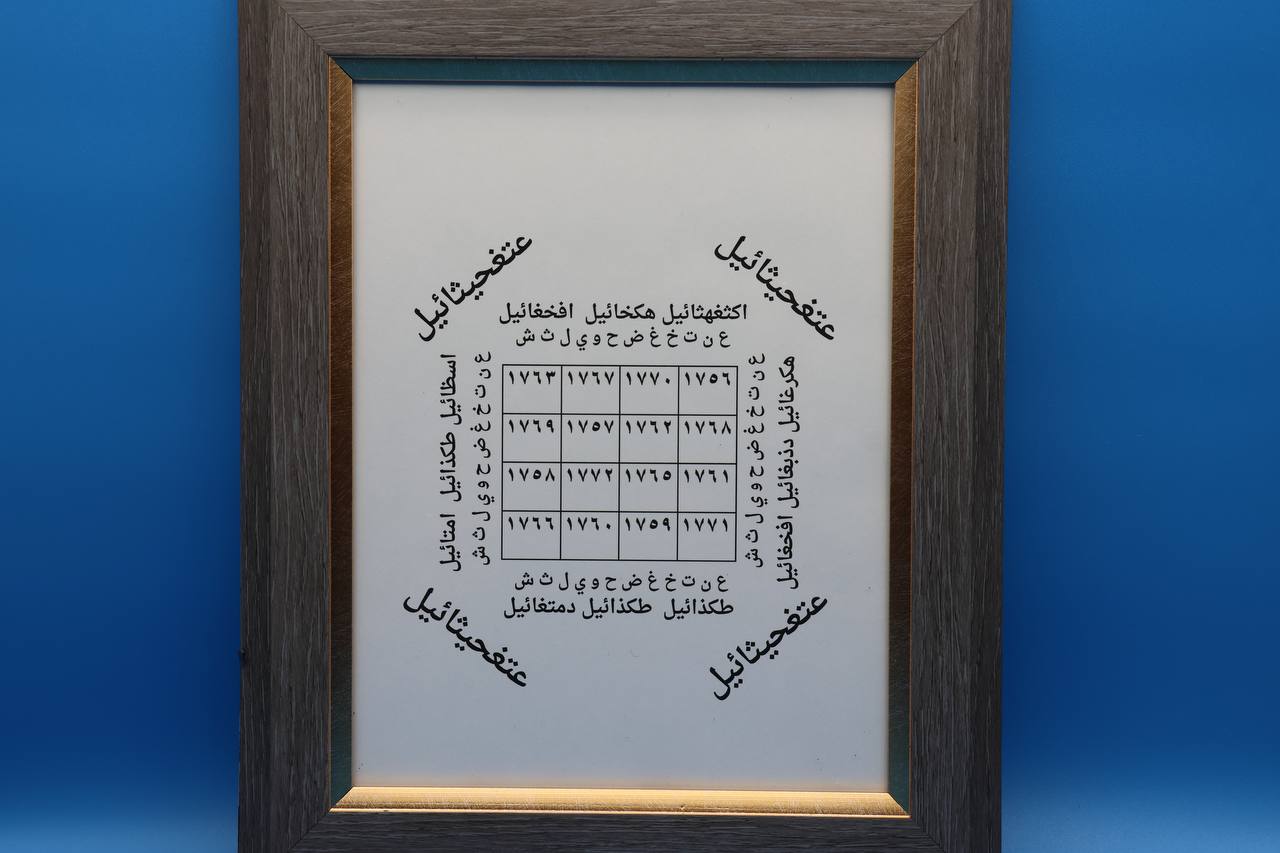 عتغحيثائيل
عتغحيثائيل
اكثغهثائيل هكخائيل افخغائيل
ع ن ت خ غ ض ح و ي ل ث ش
هكرغائيل دذبغائيل افخغائيل
ع ن ت خ غ ض ح و ي ل ث ش
١٧٦٣ ١٧٦٧ ١٧٧٠ ١٧٥٦
١٧٦٩ ١٧٥٧ ١٧٦٢ ١٧٦٨
١٧٥٨ ١٧٧٢ ١٧٦٥ ١٧٦١
١٧٦٦ ١٧٦٠ ١٧٥٩ ١٧٧١
ع ن ت خ غ ض ح و ي ل ث ش
اسظائيل طكذائيل امتائيل
ع ن ت خ غ ض ح و ي ل ث ش
طكذائيل طكذائيل دمتغائيل
عتغحيثائيل
عتغحيثائيل